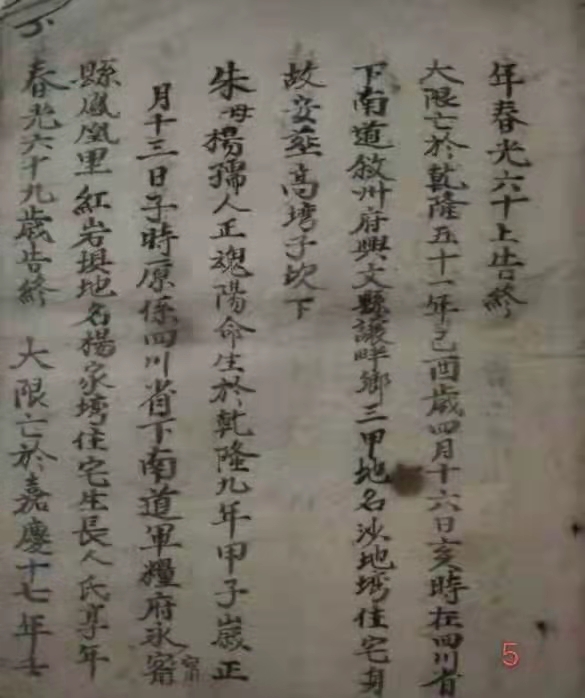 年春光六十上告終
大限亡於乾隆五十一年己酉歲四月十六日亥時在四川省
下南道敘州府興文縣讓畔鄉三甲地名沙地塆住宅身
故安葬高塆子坎下
朱母楊孺人正魂陽命生於乾隆九年甲子歲正
月十三日子時原係四川省下南道軍糧府永寧
縣鳳凰里紅岩垻地名楊家塆住宅生長人氏享年
春光六十九歲告終 大限亡於嘉慶十七年
5